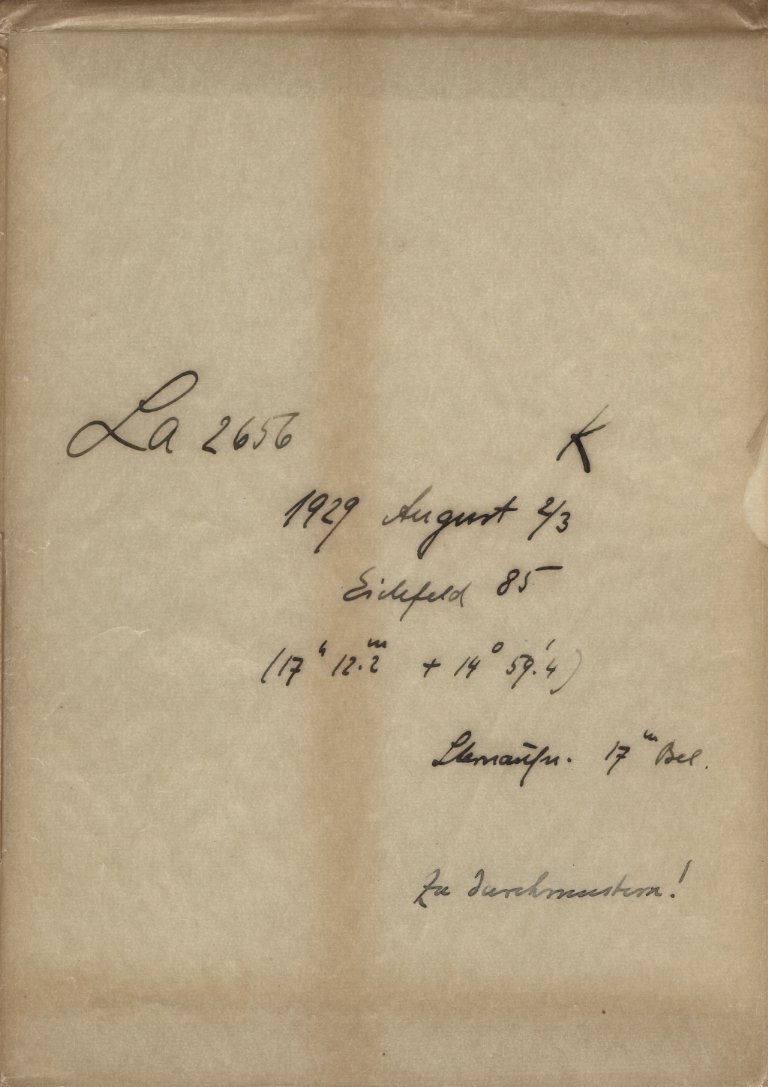 La 2656 K
1929 August 2/3
Eichfeld 85
(17h 12.m2 + 14° 59.'4)
Sternaufn. 17m Bel.
Zu durchmustern!